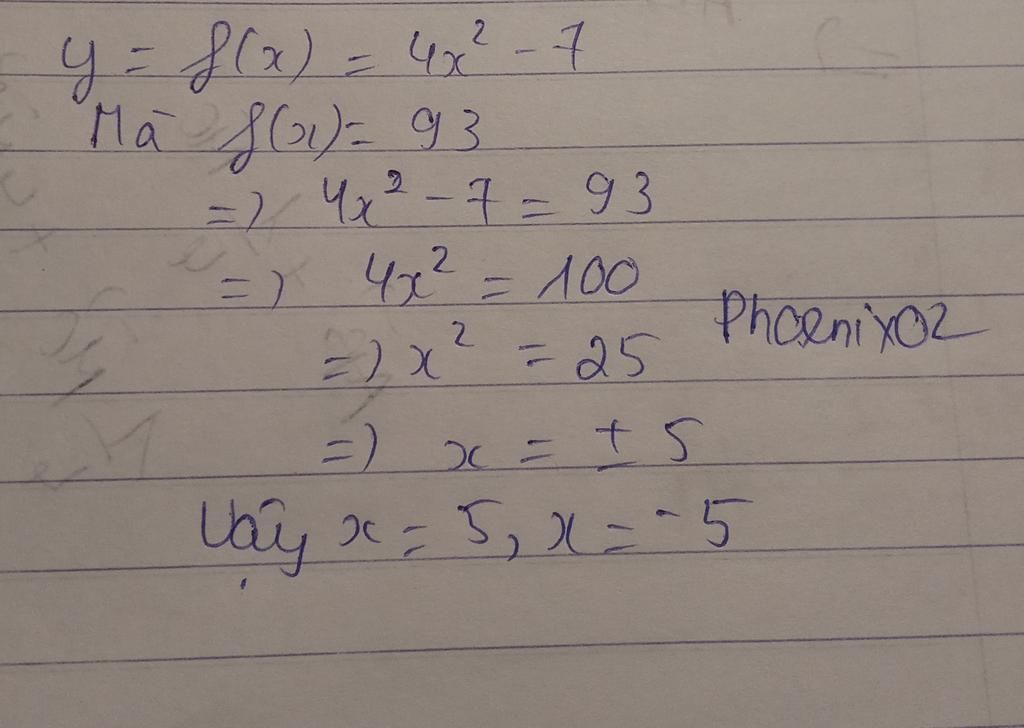 y = f(x) = 4x² - 7
Mà f(x) = 93
=) 4x² - 7 = 93
=) 4x² = 100
=) x² = 25
Phoenix02
=) x = ± 5
Vậy x = 5, x = -5